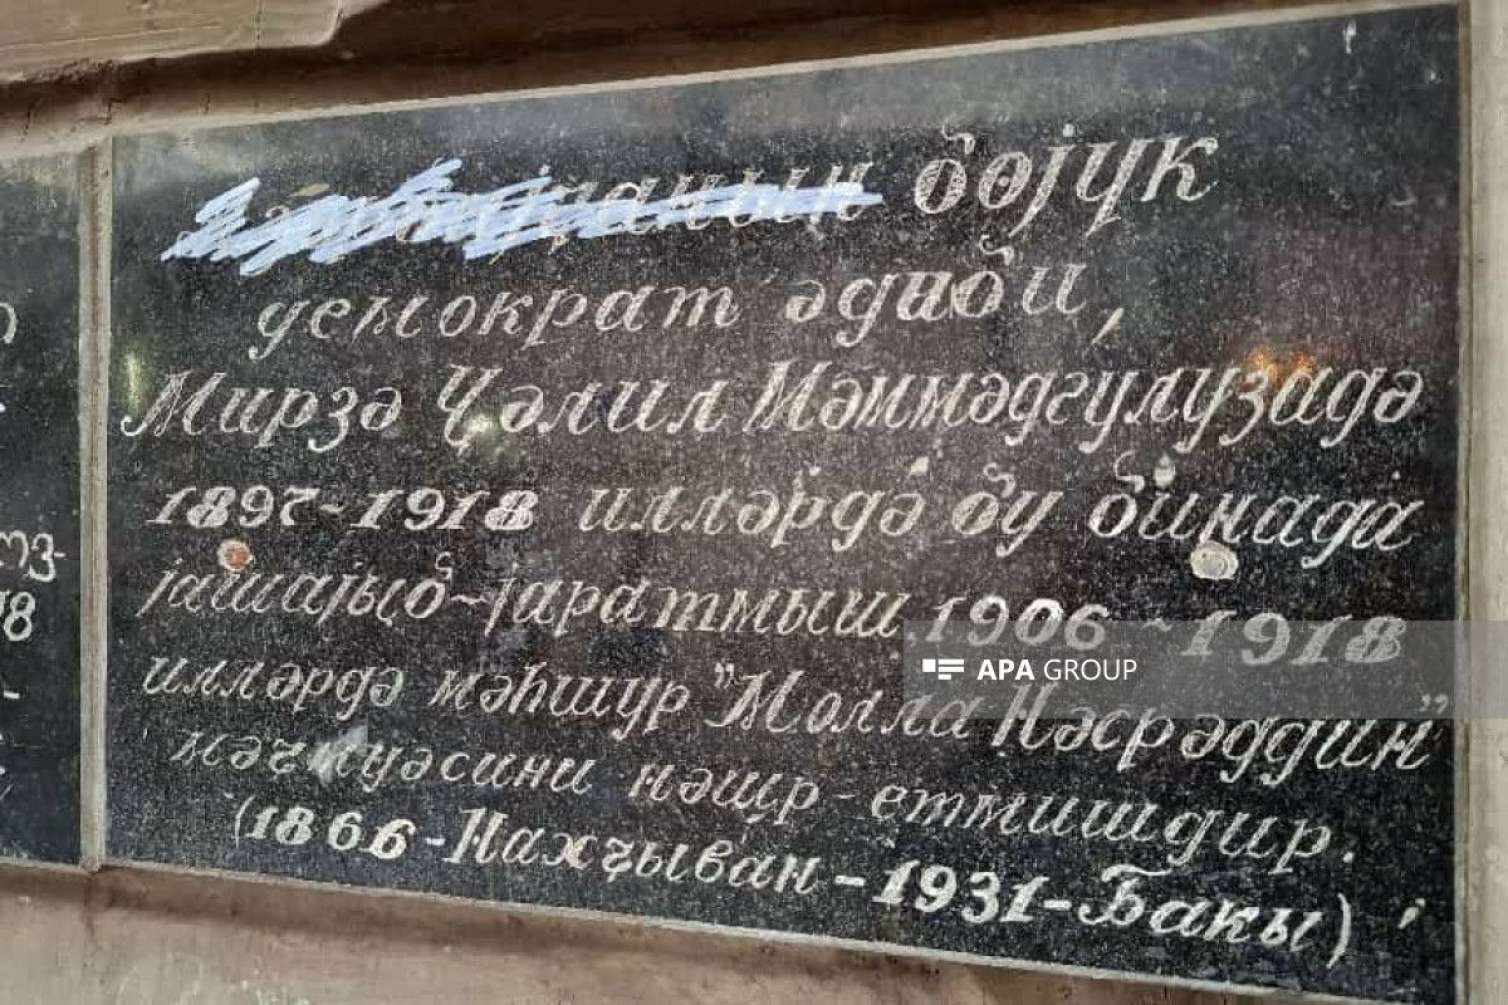 бөјүк
демократ әдиби,
Мирзә Ҹәлил Мәммәдгулузадә
1897-1918 илләрдә бу бинада
јашајыб-јаратмыш. 1906-1918
илләрдә мәһшур "Молла Нәсрәддин"
мәҹмуәсини нәшр-етмишдир.
(1866-Нахҹыван-1931-Бакы)
APA GROUP